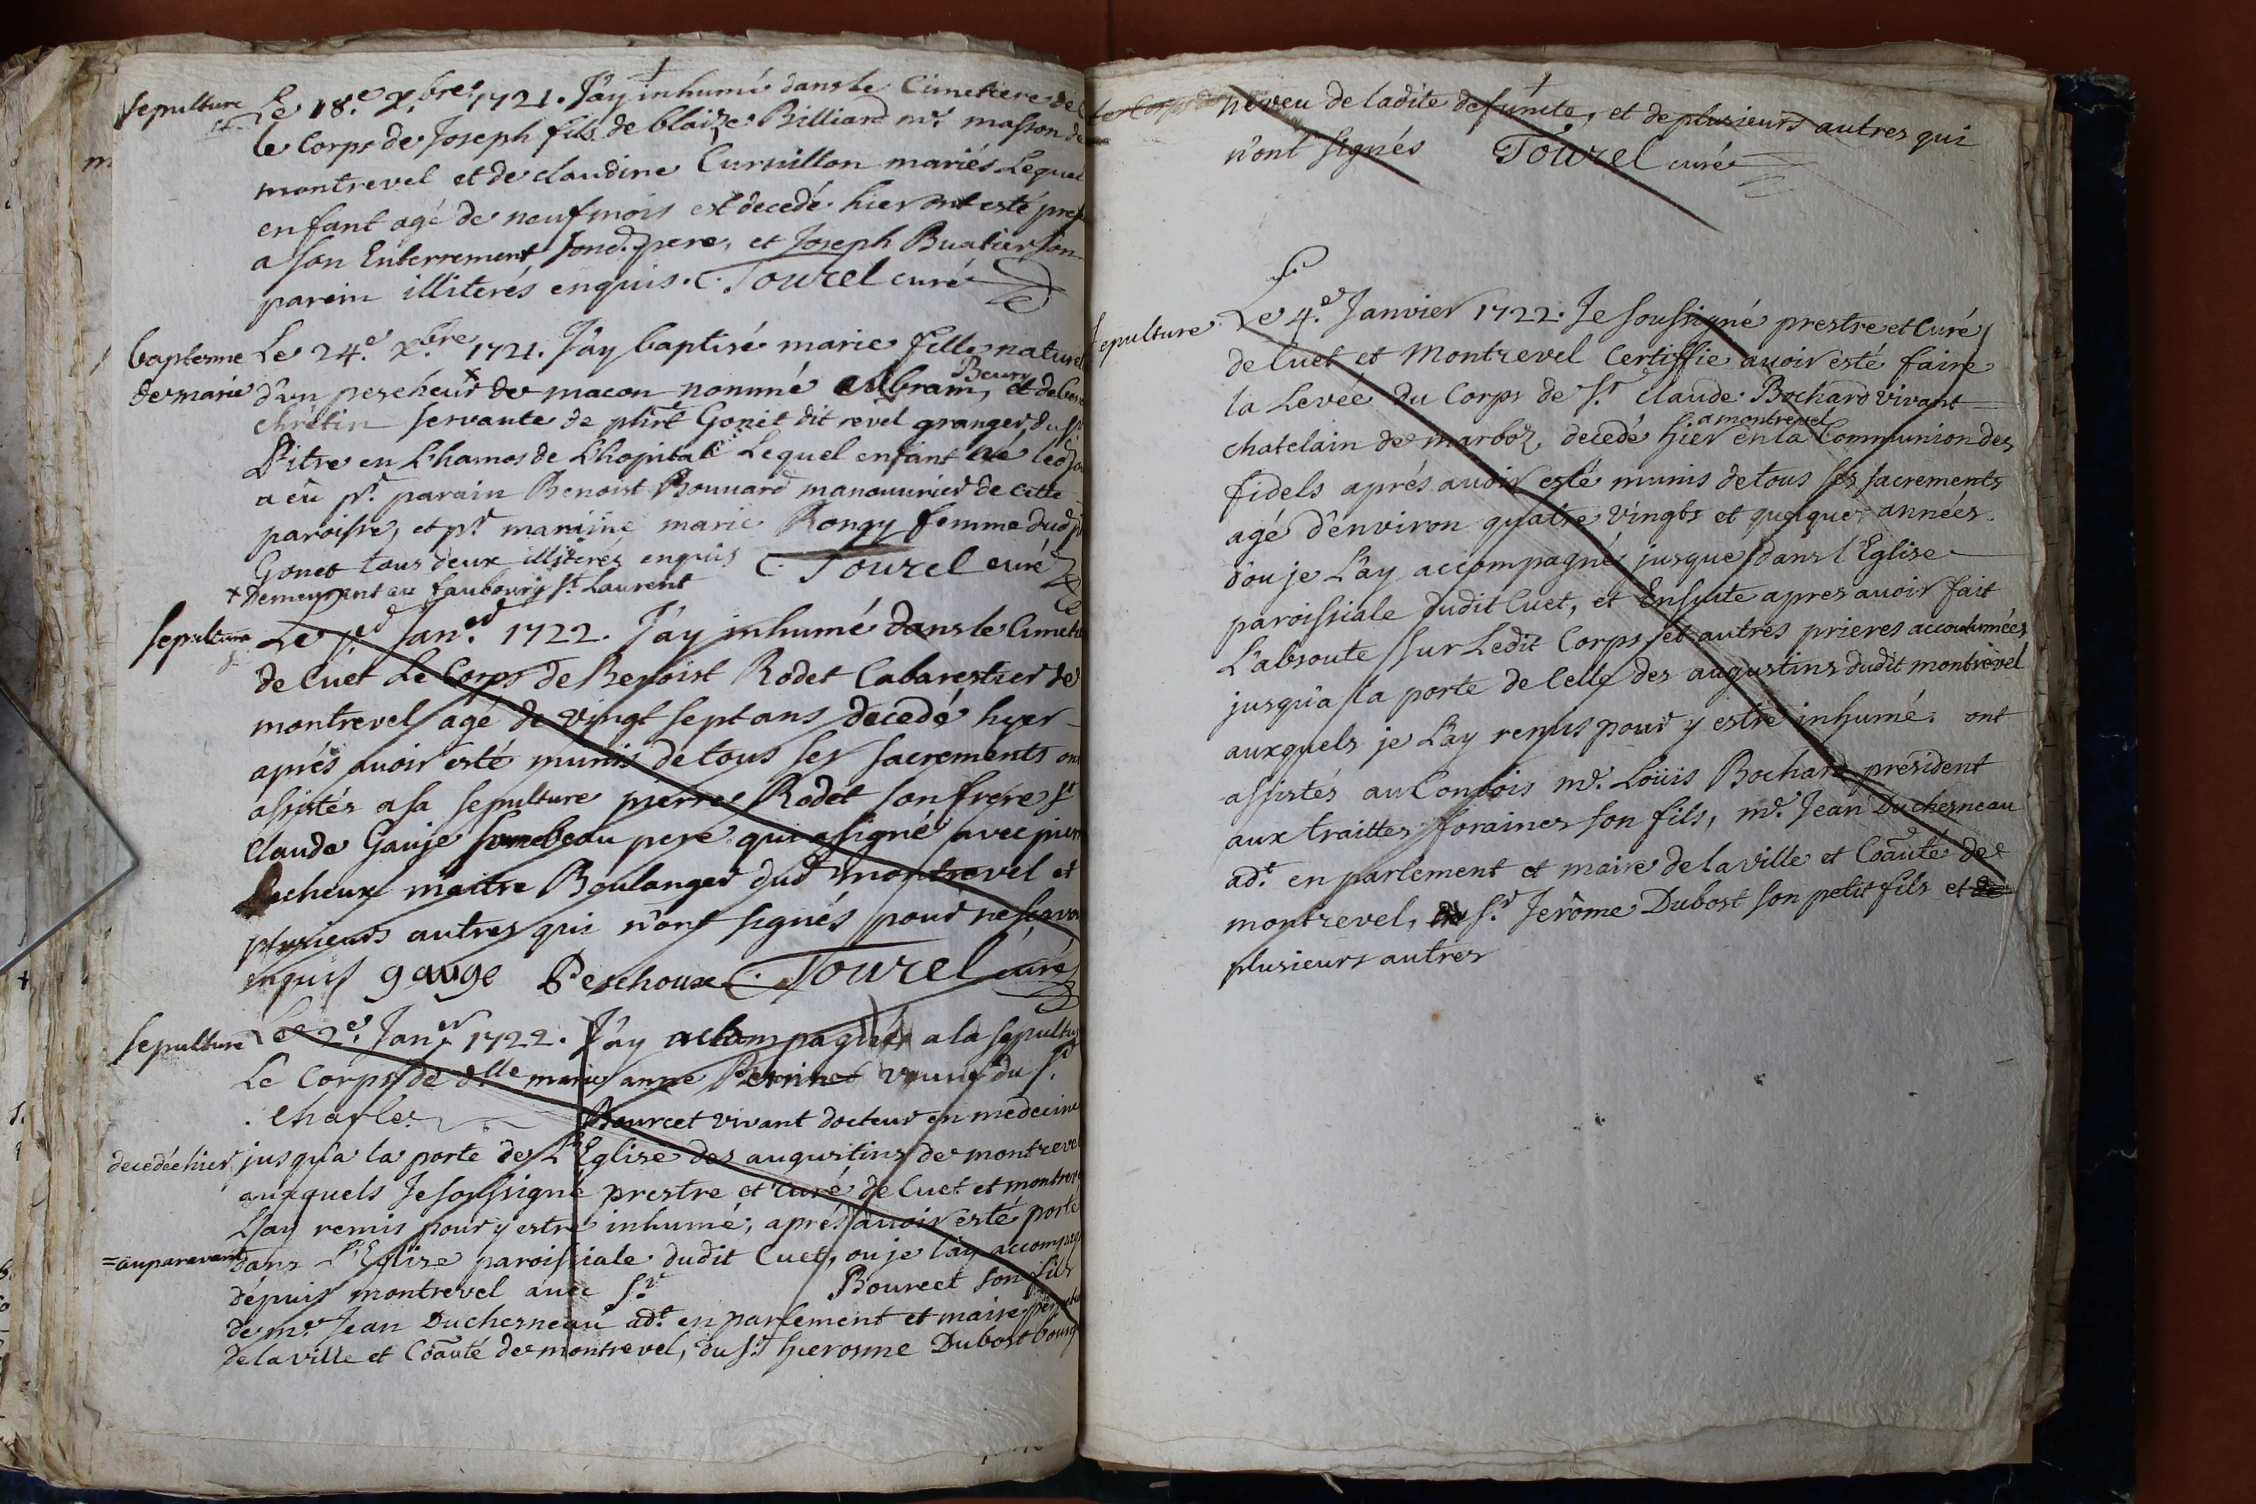 sepulture Le 18.e x.bre 1721. J'ay inhumé dans le Cimetiere de
le Corps de Joseph fils de blaize Billiard m.e masson de
montrevel et de claudine Curvillon mariés Lequel
enfant agé de neuf mois est decedé hier ont esté
a son Enterrement sond. pere, et Joseph Buatier son
parein illiterés enquis. C. Tourel curé
baptesme Le 24.e x.bre 1721. J'ay baptisé marie fille naturel
de marie d'un pescheur x de macon nommé Abram Beury, et de
chrétin servante de phrt Gonet dit revel granger du sr
Pitre en Lhamos de Lhopital Lequel enfant né led. jo
a eû pr. parain Benoist Bouvard manouvrier de cette
paroisse, et pr. marine marie Rongy femme dud. p
Gonet tous deux illiterés enquis C. Tourel curé
x Demeurant au faubourg st. Laurent
sepulture Le Jan.er 1722. J'ay inhumé dans le Cimeti
de Cuet Le Corps de Benoist Rodet Cabarestier de
montrevel agé de vingt sept ans decedé hyer
aprés avoir esté munis de tous ses sacrements ont
assistés a sa sepulture pierre Rodet son frere sr
Claude Gauje beau pere qui a signé avec pierre
Pecheux maitre Boulanger dud. montrevel et
plusieurs autres qui n'ont signés pour ne scavoi
enquis gauge Peschoux C. Tourel curé
sepulture Le 2.e Jan.er 1722. J'ay accompagné a la sepultur
Le Corps de dlle marie anne Perrinet veuve du sr.
Charles Bourcet vivant docteur en medecine
decedée hier jusqu'a la porte de L'Eglise des augustins de montrevel
auxquels Je soussigné prestre et curé de Cuet et montrev
L'ay remis pour y estre inhumé, aprés avoir esté porté
=auparavant dans L'Eglise paroissiale dudit Cuet, ou je l'ay accompag
dépuis montrevel avec sr. Bourcet son fils
de m.e Jean Duchesneau adt. en parlement et maire perpetu
de la ville et Coãuté de montrevel, du sr. hierosme Dubost bourg
neveu de ladite defunte, et de plusieurs autres qui
n'ont signés Tourel curé
sepulture Le 4.e Janvier 1722. Je soussigné prestre et Curé
de Cuet et Montrevel Certiffie avoir esté faire
la Levée du Corps de sr. claude Bochard vivant
chatelain de marboz, decedé hier a montrevel en la Communion des
fidels aprés avoir esté munis de tous ses sacrements
agé d'environ quatre vingts et quelque années
d'ou je L'ay accompagné jusque dans l'Eglise
paroissiale dudit Cuet, et Ensuite apres avoir fait
L'absoute sur Ledit Corps et autres prieres accoutumées
jusqu'a la porte de Celle des augustins dudit montrevel
auxquels je L'ay remis pour y estre inhumé. ont
assistés au Convois m.e Loüis Bochard président
aux traittes foraines son fils, m.e Jean Duchesneau
adt. en parlement et maire de la ville et Coãuté de
montrevel, sr. Jerôme Dubost son petit fils et de
plusieurs autres